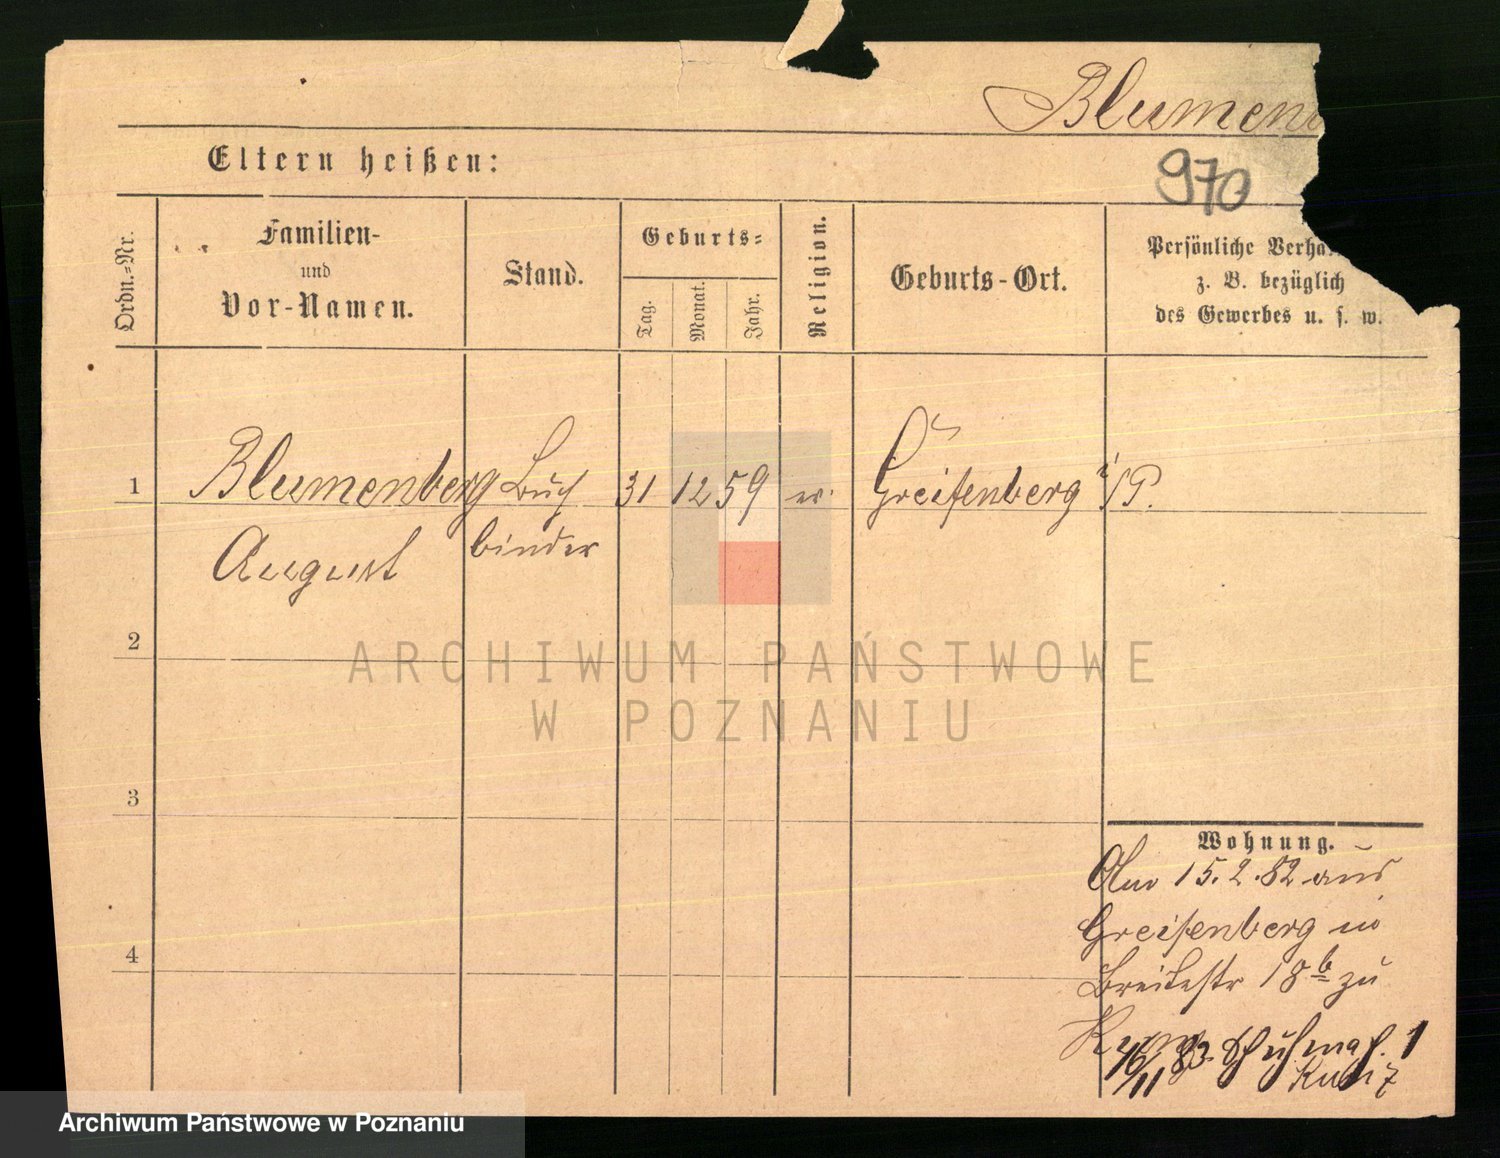 Blumen
970
Eltern heißen:
Ordn.=Nr.
Familien-
und
Vor-Namen.
Stand.
Geburts=
Tag.
Monat.
Jahr.
Religion.
Geburts-Ort.
Persönliche Verha
z. B. bezüglich
des Gewerbes u. s. w.
1 Blumenberg Buch 31 12 59 ev. Greifenberg i/P.
August binder
2
3
4
Wohnung.
Am 15.2.82 aus
Greifenberg in
Breitestr 18b zu
16/11 83. Schuhmach. 1
ARCHIWUM PAŃSTWOWE
W POZNANIU
Archiwum Państwowe w Poznaniu